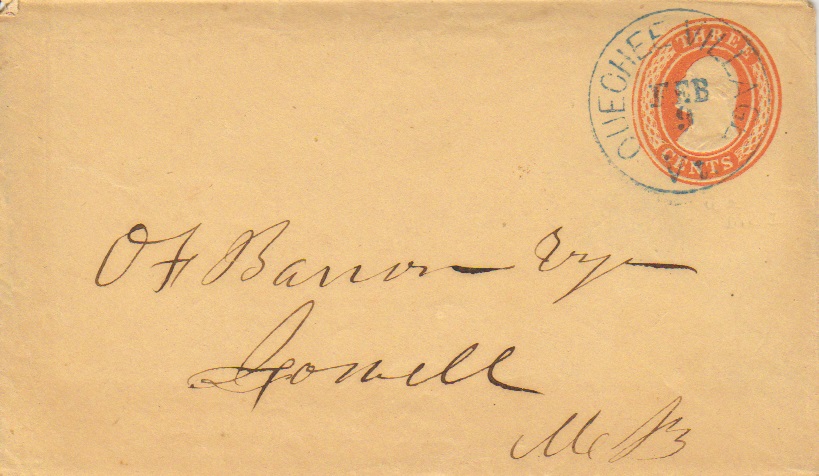 THREE
CENTS
QUECHEE VILLAGE
Vt.
FEB
9
O F Barron Esq
Lowell